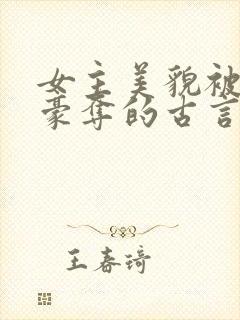 女主美貌被
豪夺的古言
王春琦